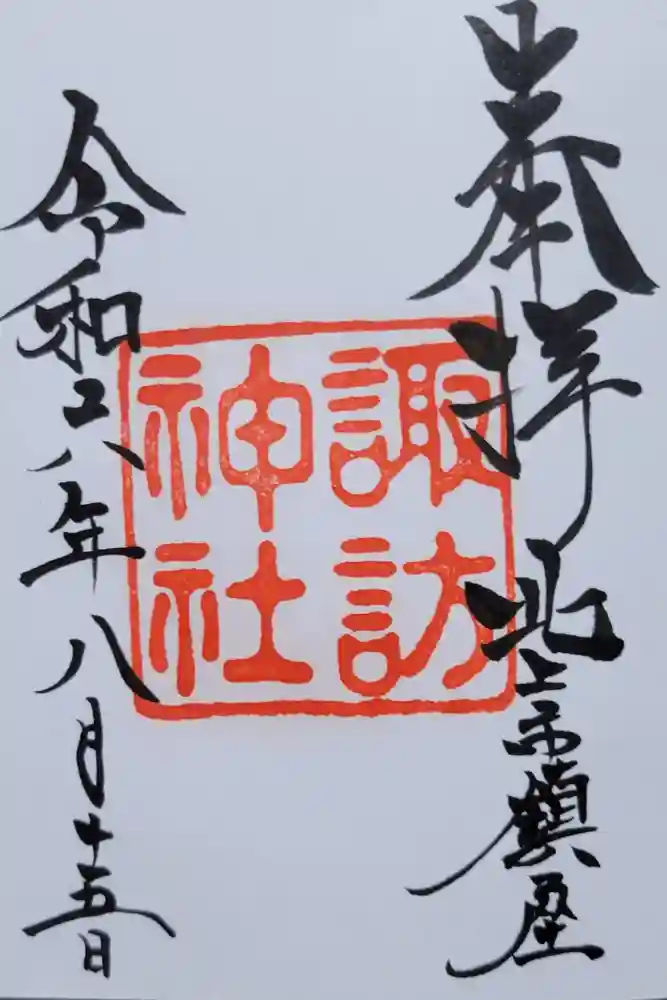 奉拝 北上市鎮座
諏訪
神社
令和六年八月十五日